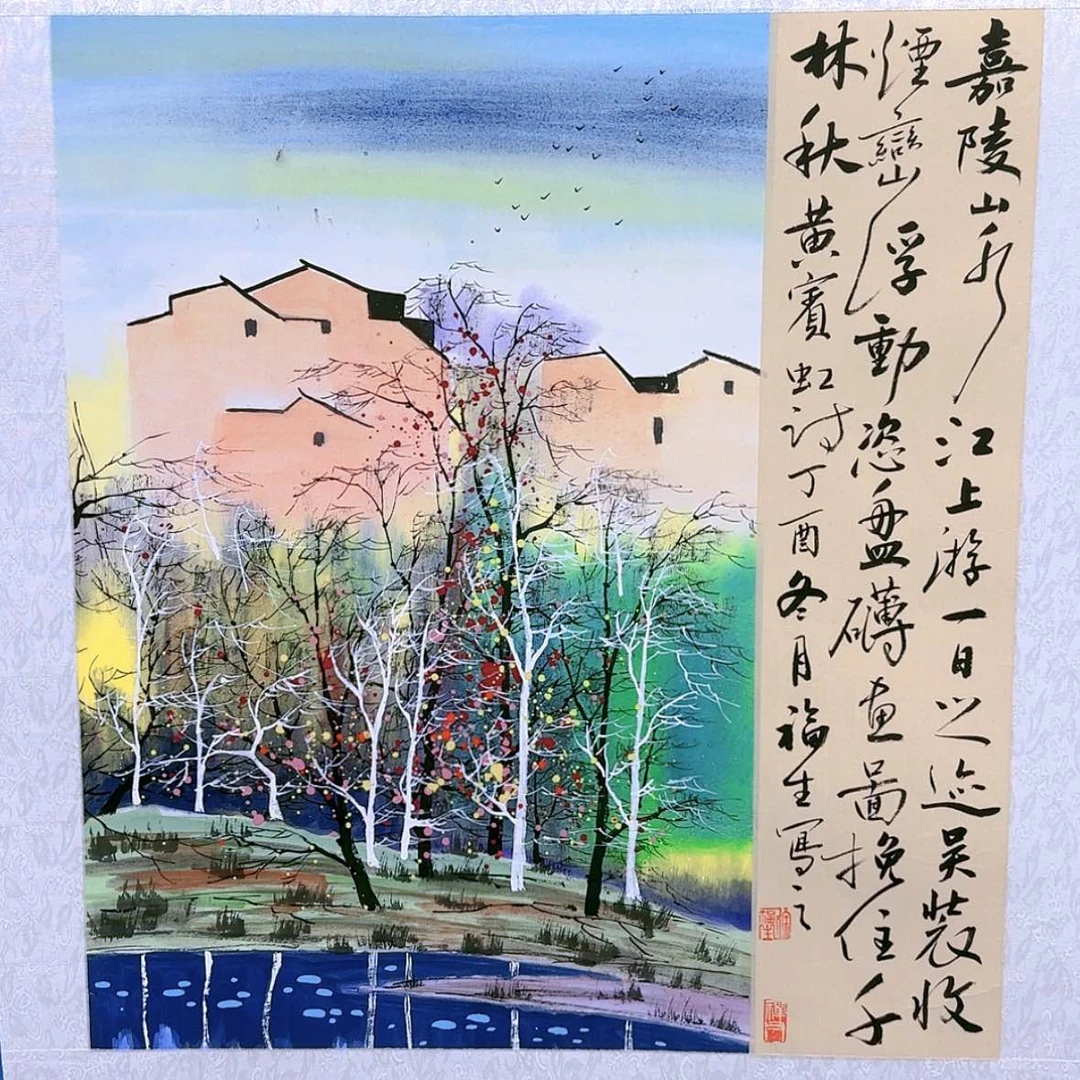 嘉陵山水江上游一日之迹吴装收
煙巒浮動恣盘礴画圖挽住千
林秋黄賓虹诗丁酉冬月福生寫之